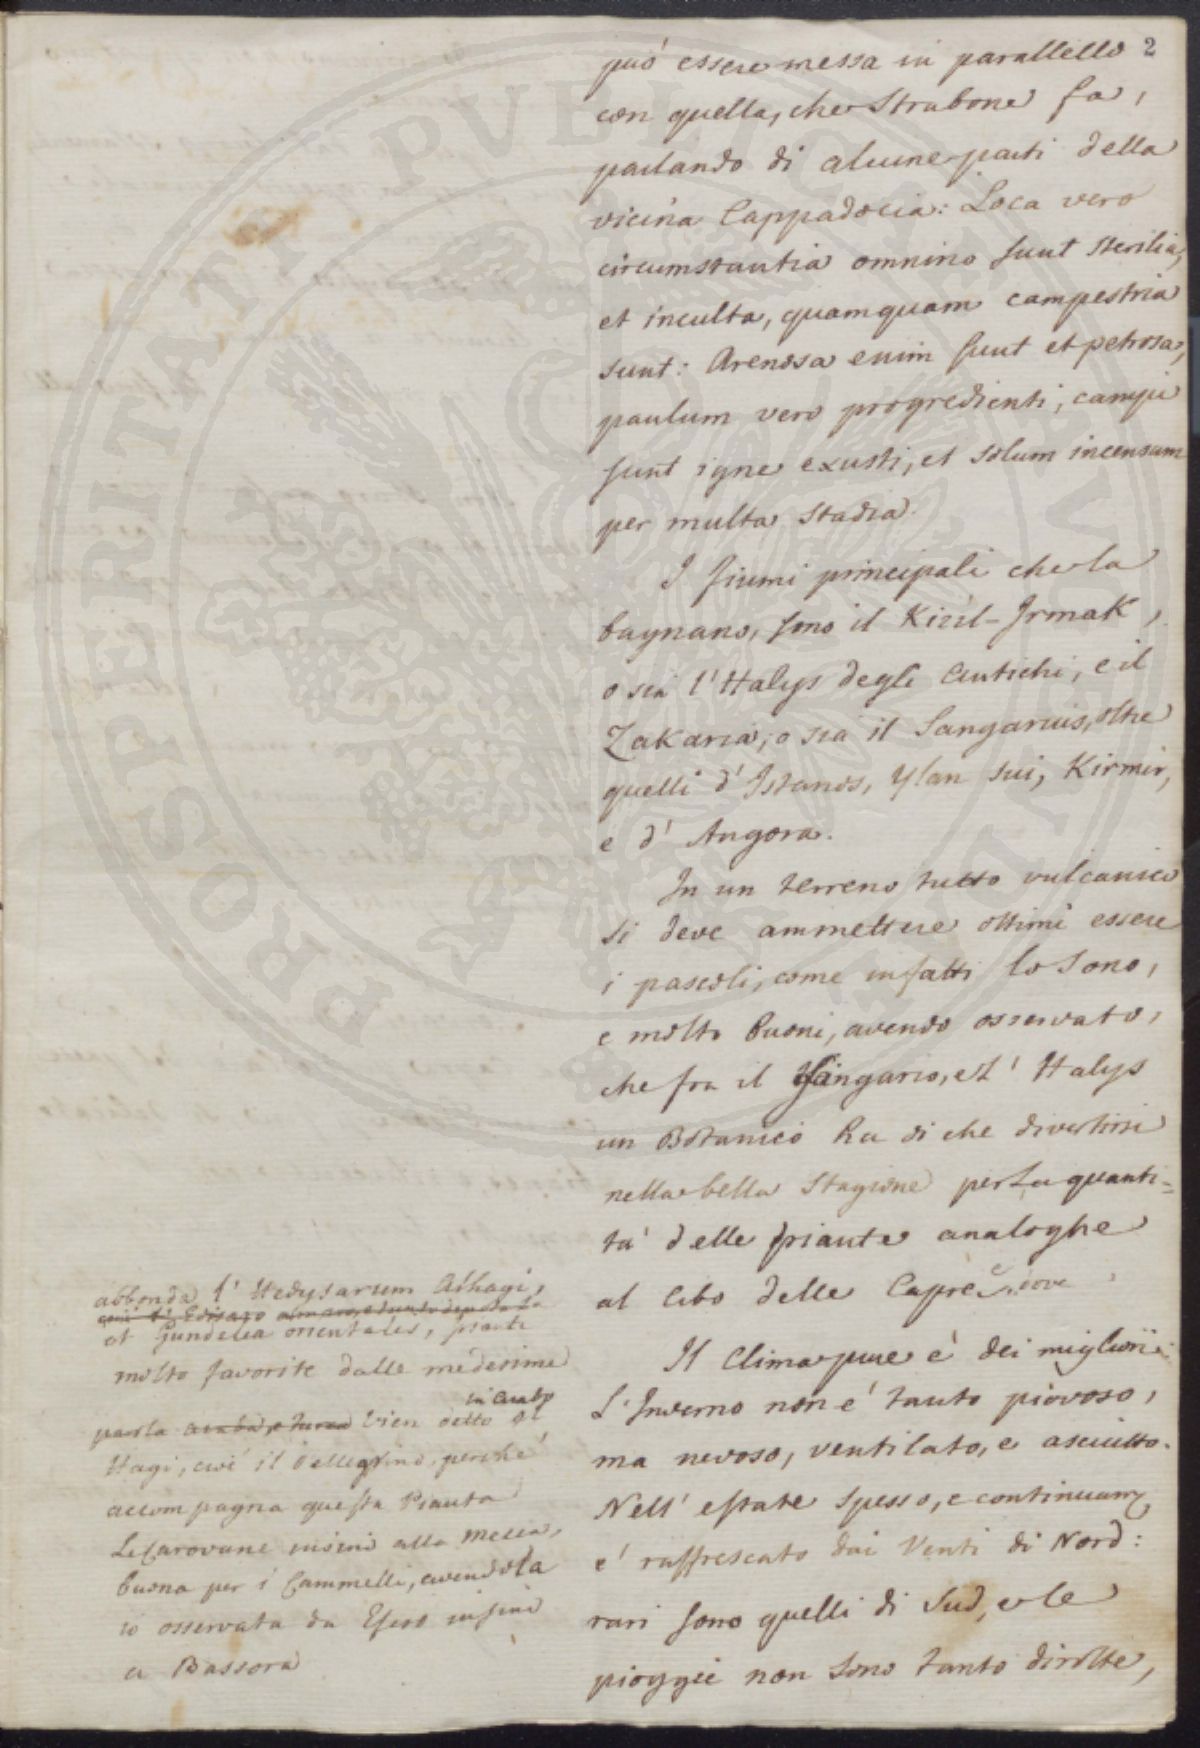 2
può essere messa in parallello
con quella, che Strabone fa,
parlando di alcune parti della
vicina Cappadocia: Loca vero
circumstantia omnino sunt sterilia,
et inculta, quamquam campestria
sunt: Arenosa enim sunt et petrosa,
paulum vero progredienti, campi
sunt igne exusti, et solum incensum
per multa stadia.
I fiumi principali che la
bagnano, sono il Kizil-Irmak,
o sia l'Halys degli Antichi, e il
Zakaria, o sia il Sangarius, oltre
quelli d'Istanos, Ylan sui, Kirmir,
e d'Angora.
In un terreno tutto vulcanico
si deve ammettere ottimi essere
i pascoli, come infatti lo sono,
e molto buoni, avendo osservato,
che fra il Sangario, e l'Halys
un Botanico ha di che divertirsi
nella bella stagione per la quanti=
tà delle piante analoghe
al cibo delle Capre, e dove
abbonda l'Hedysarum Alhagi,
et Gundelia orientales, piante
molto favorite dalle medesime
parla araba, e turca vien detto in Arabo al
Hagi, cioè il Pellegrino, perchè
accompagna questa Pianta
Le Carovane insino alla Mecca,
buona per i Cammelli, avendola
io osservata da Efeso insino
a Bassora
Il Clima pure è dei migliori:
L'Inverno non è tanto piovoso,
ma nevoso, ventilato, e asciutto.
Nell'estate spesso, e continuam
è raffrescato dai Venti di Nord:
rari sono quelli di Sud, e le
pioggie non sono tanto dirotte,
PROSPERITATI PVBLICAE